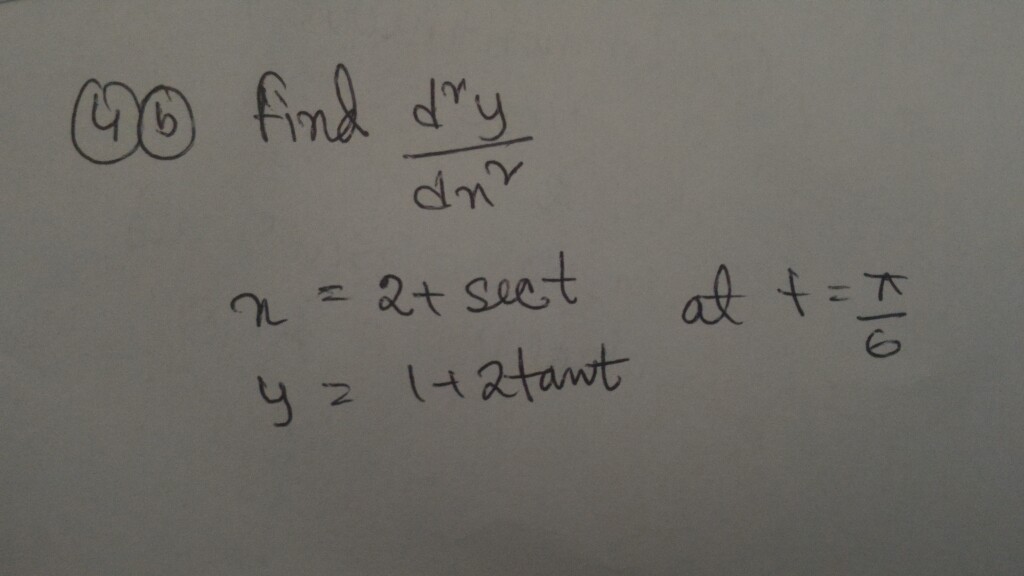 4 b find d²y/dx²
x = 2 + sect at t = π/6
y = 1 + 2tant